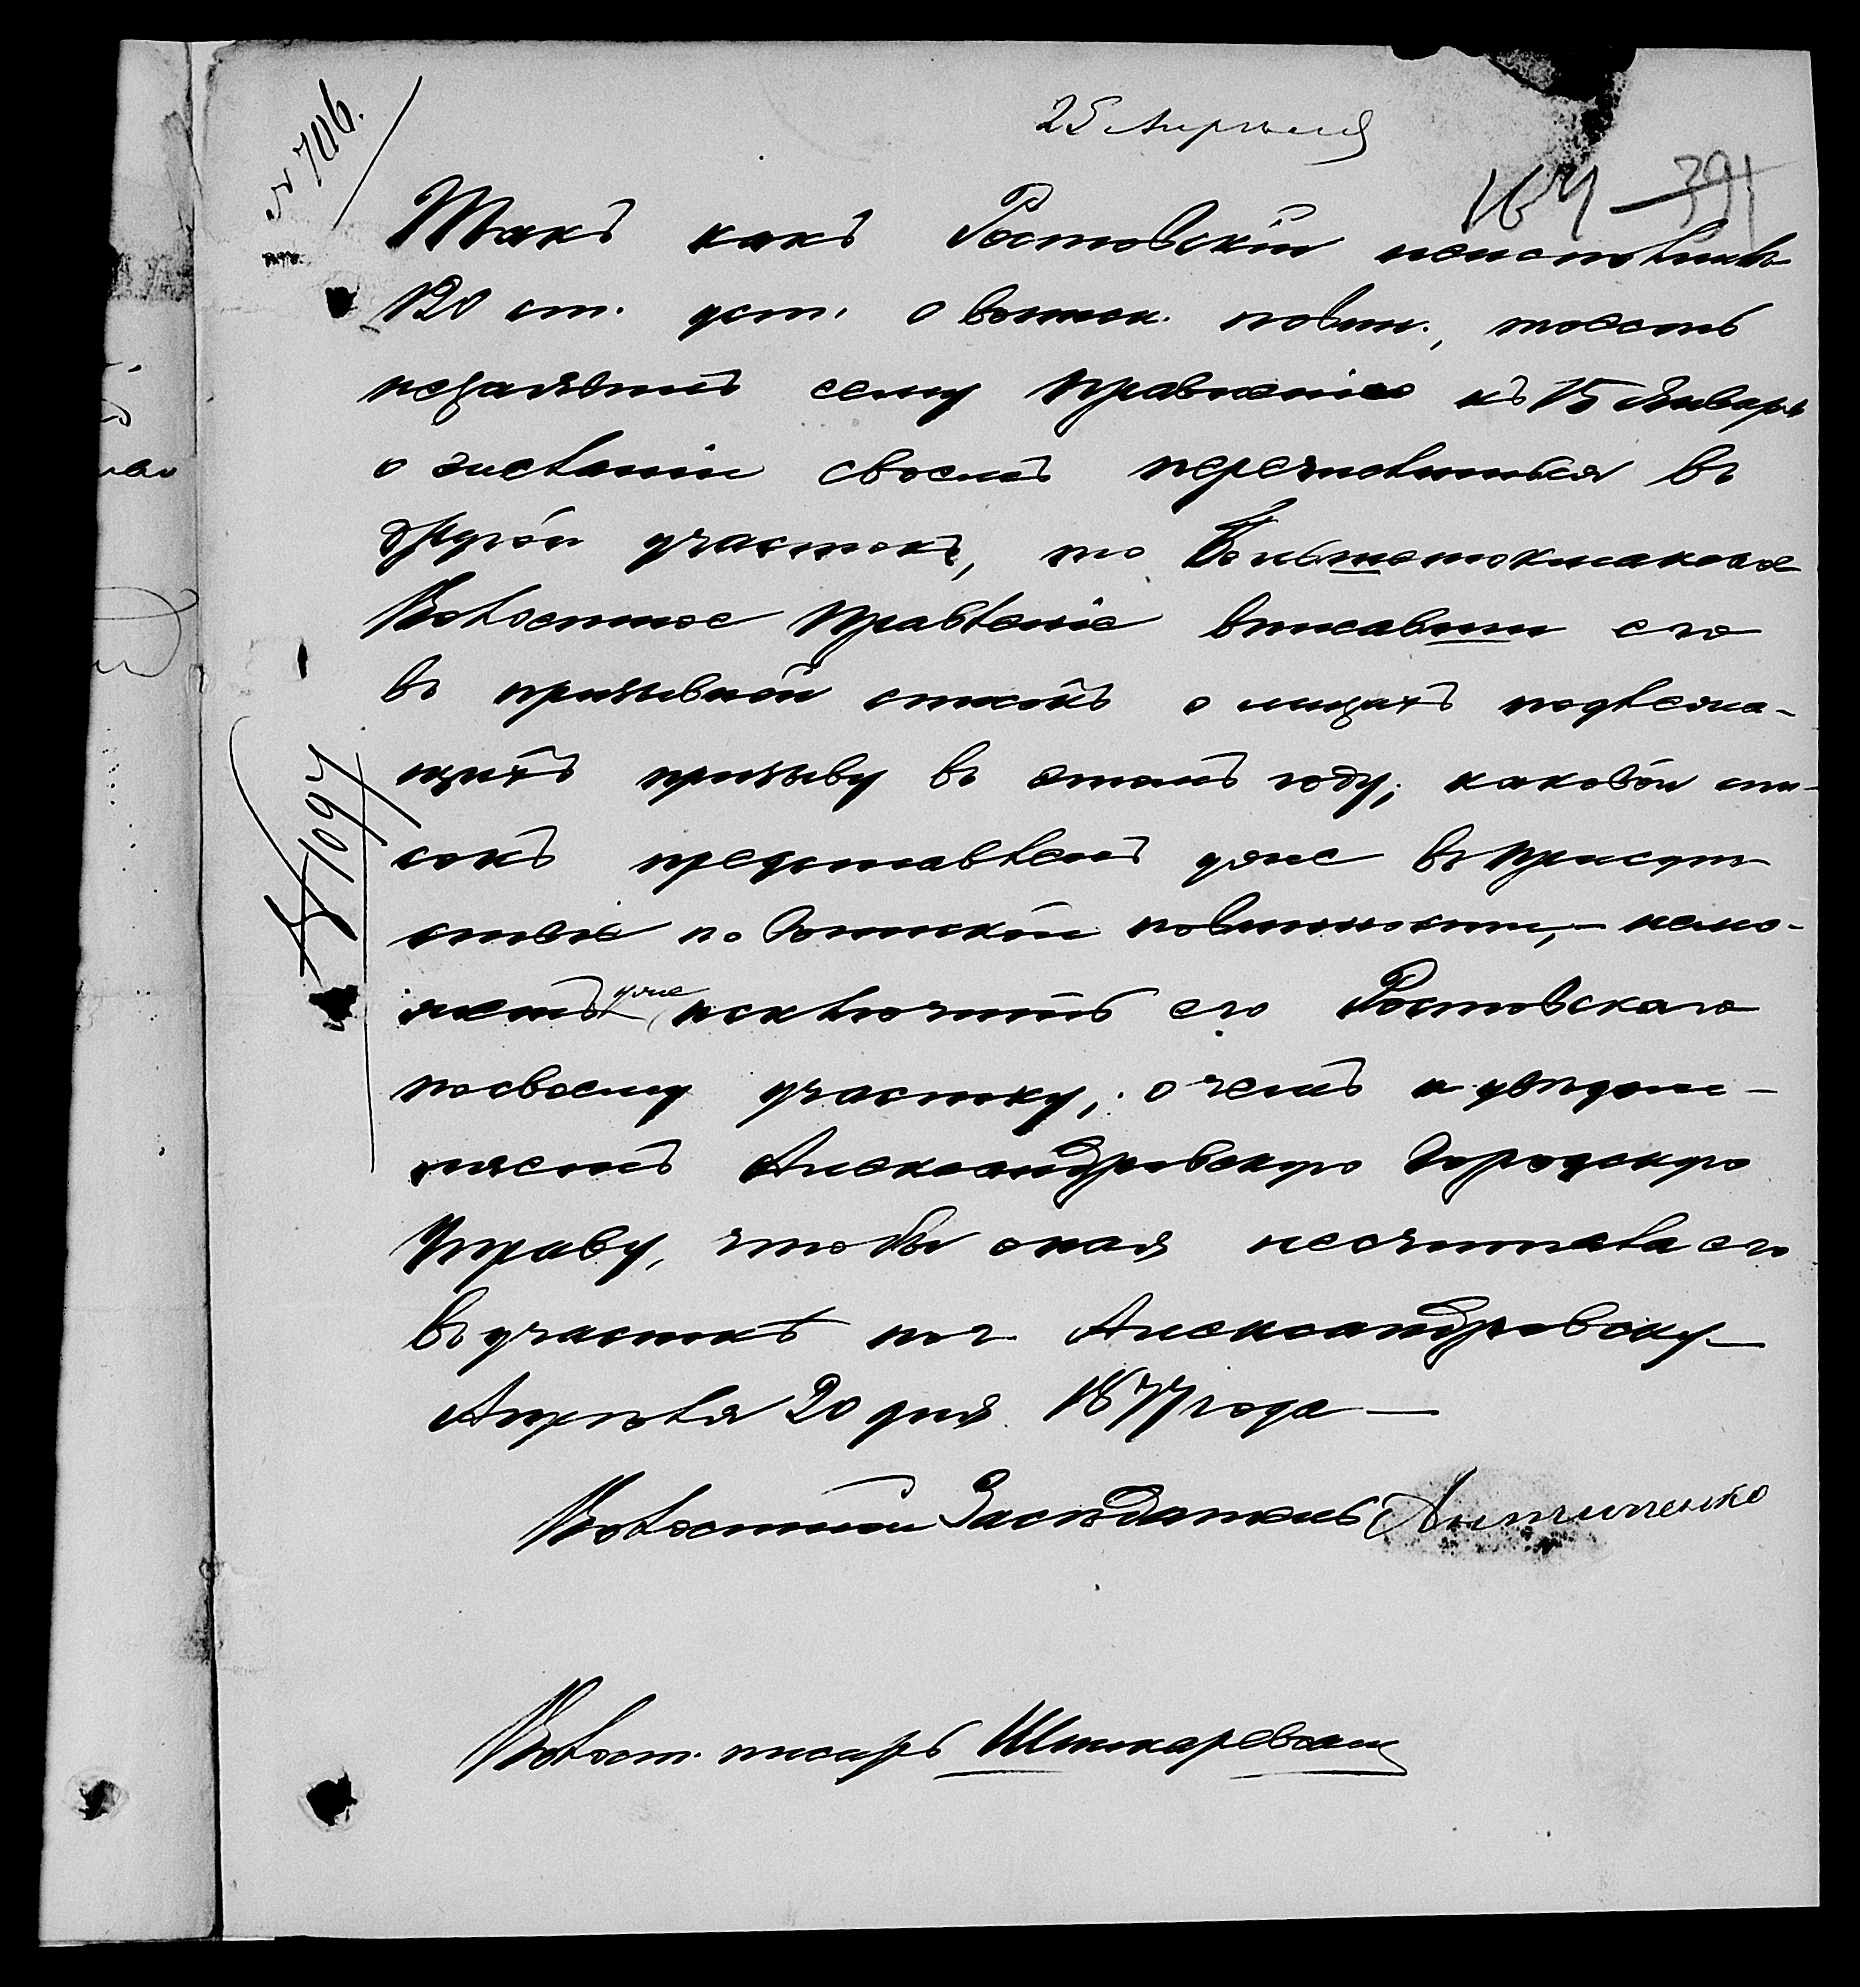 № 706.
25 Апрѣля
164 391
Такъ какъ Ростовскій неисполнилъ
120 ст. уст. о воинск. повин., тоесть
незаявилъ сему Правленію къ 15 Января
о желаніи своемъ перечислиться въ
другой участокъ, то Большетокмакское
Волостное Правленіе вписавши его
въ призывной списокъ о лицахъ подлежа-
щихъ призыву въ этомъ году; каковой спи-
сокъ представленъ уже въ Присут-
ствіе по Воинской повинности, – немо-
жетъ уже исключить его Ростовскаго
посвоему участку; о чемъ и увѣдом-
ляетъ Александровскую Городскую
Управу, чтобы оная несчитала его
въ участкѣ по г. Александровску –
Апрѣля 20 дня 1877 года –
№ 1097
Волостный Засѣдатель
Волост. писарь